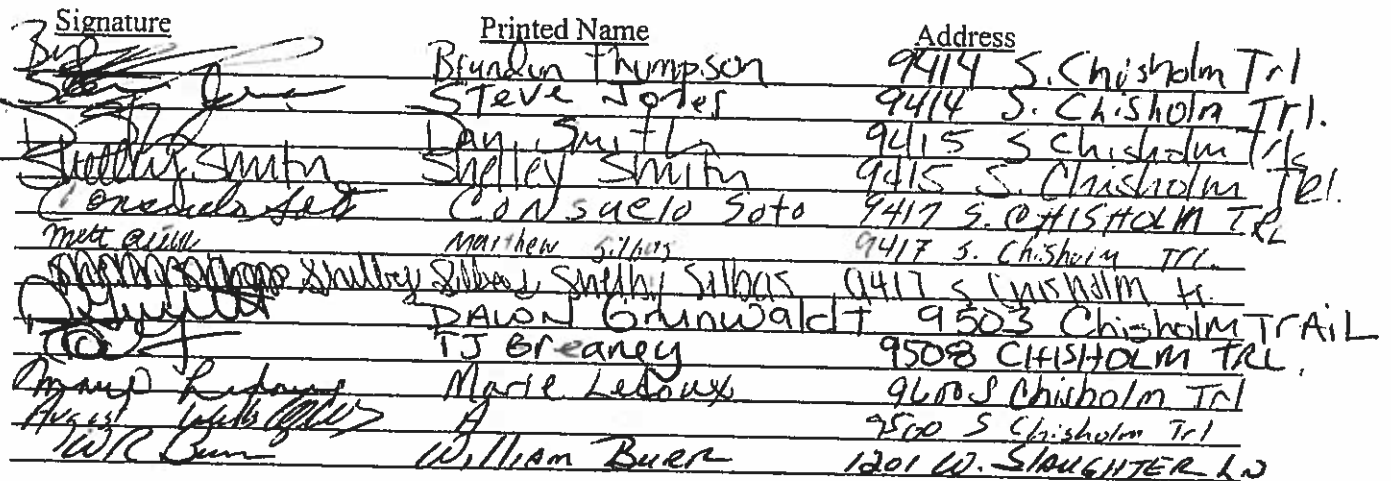 Signature Printed Name Address
Brandon Thompson 9414 S. Chisholm Trl
Steve Jones 9414 S. Chisholm Trl.
Dan Smith 9415 S Chisholm Trls
Shelley Smith Shelley Smith 9415 S. Chisholm TRl.
Consuelo Soto Consuelo Soto 9417 S. CHISHOLM TRL
Matthew Silbas 9417 S. Chisholm Trl.
Shelby Silbas Shelby Silbas 9417 S Chisholm tr.
DAWON Grunwaldt 9503 Chisholm TrAiL
TJ Breaney 9508 CHISHOLM TRL.
Marie Ledoux Marie Ledoux 9600 S Chisholm Trl
August A 9500 S Chisholm Trl
WR Burr William Burr 1201 W. SLAUGHTER LN